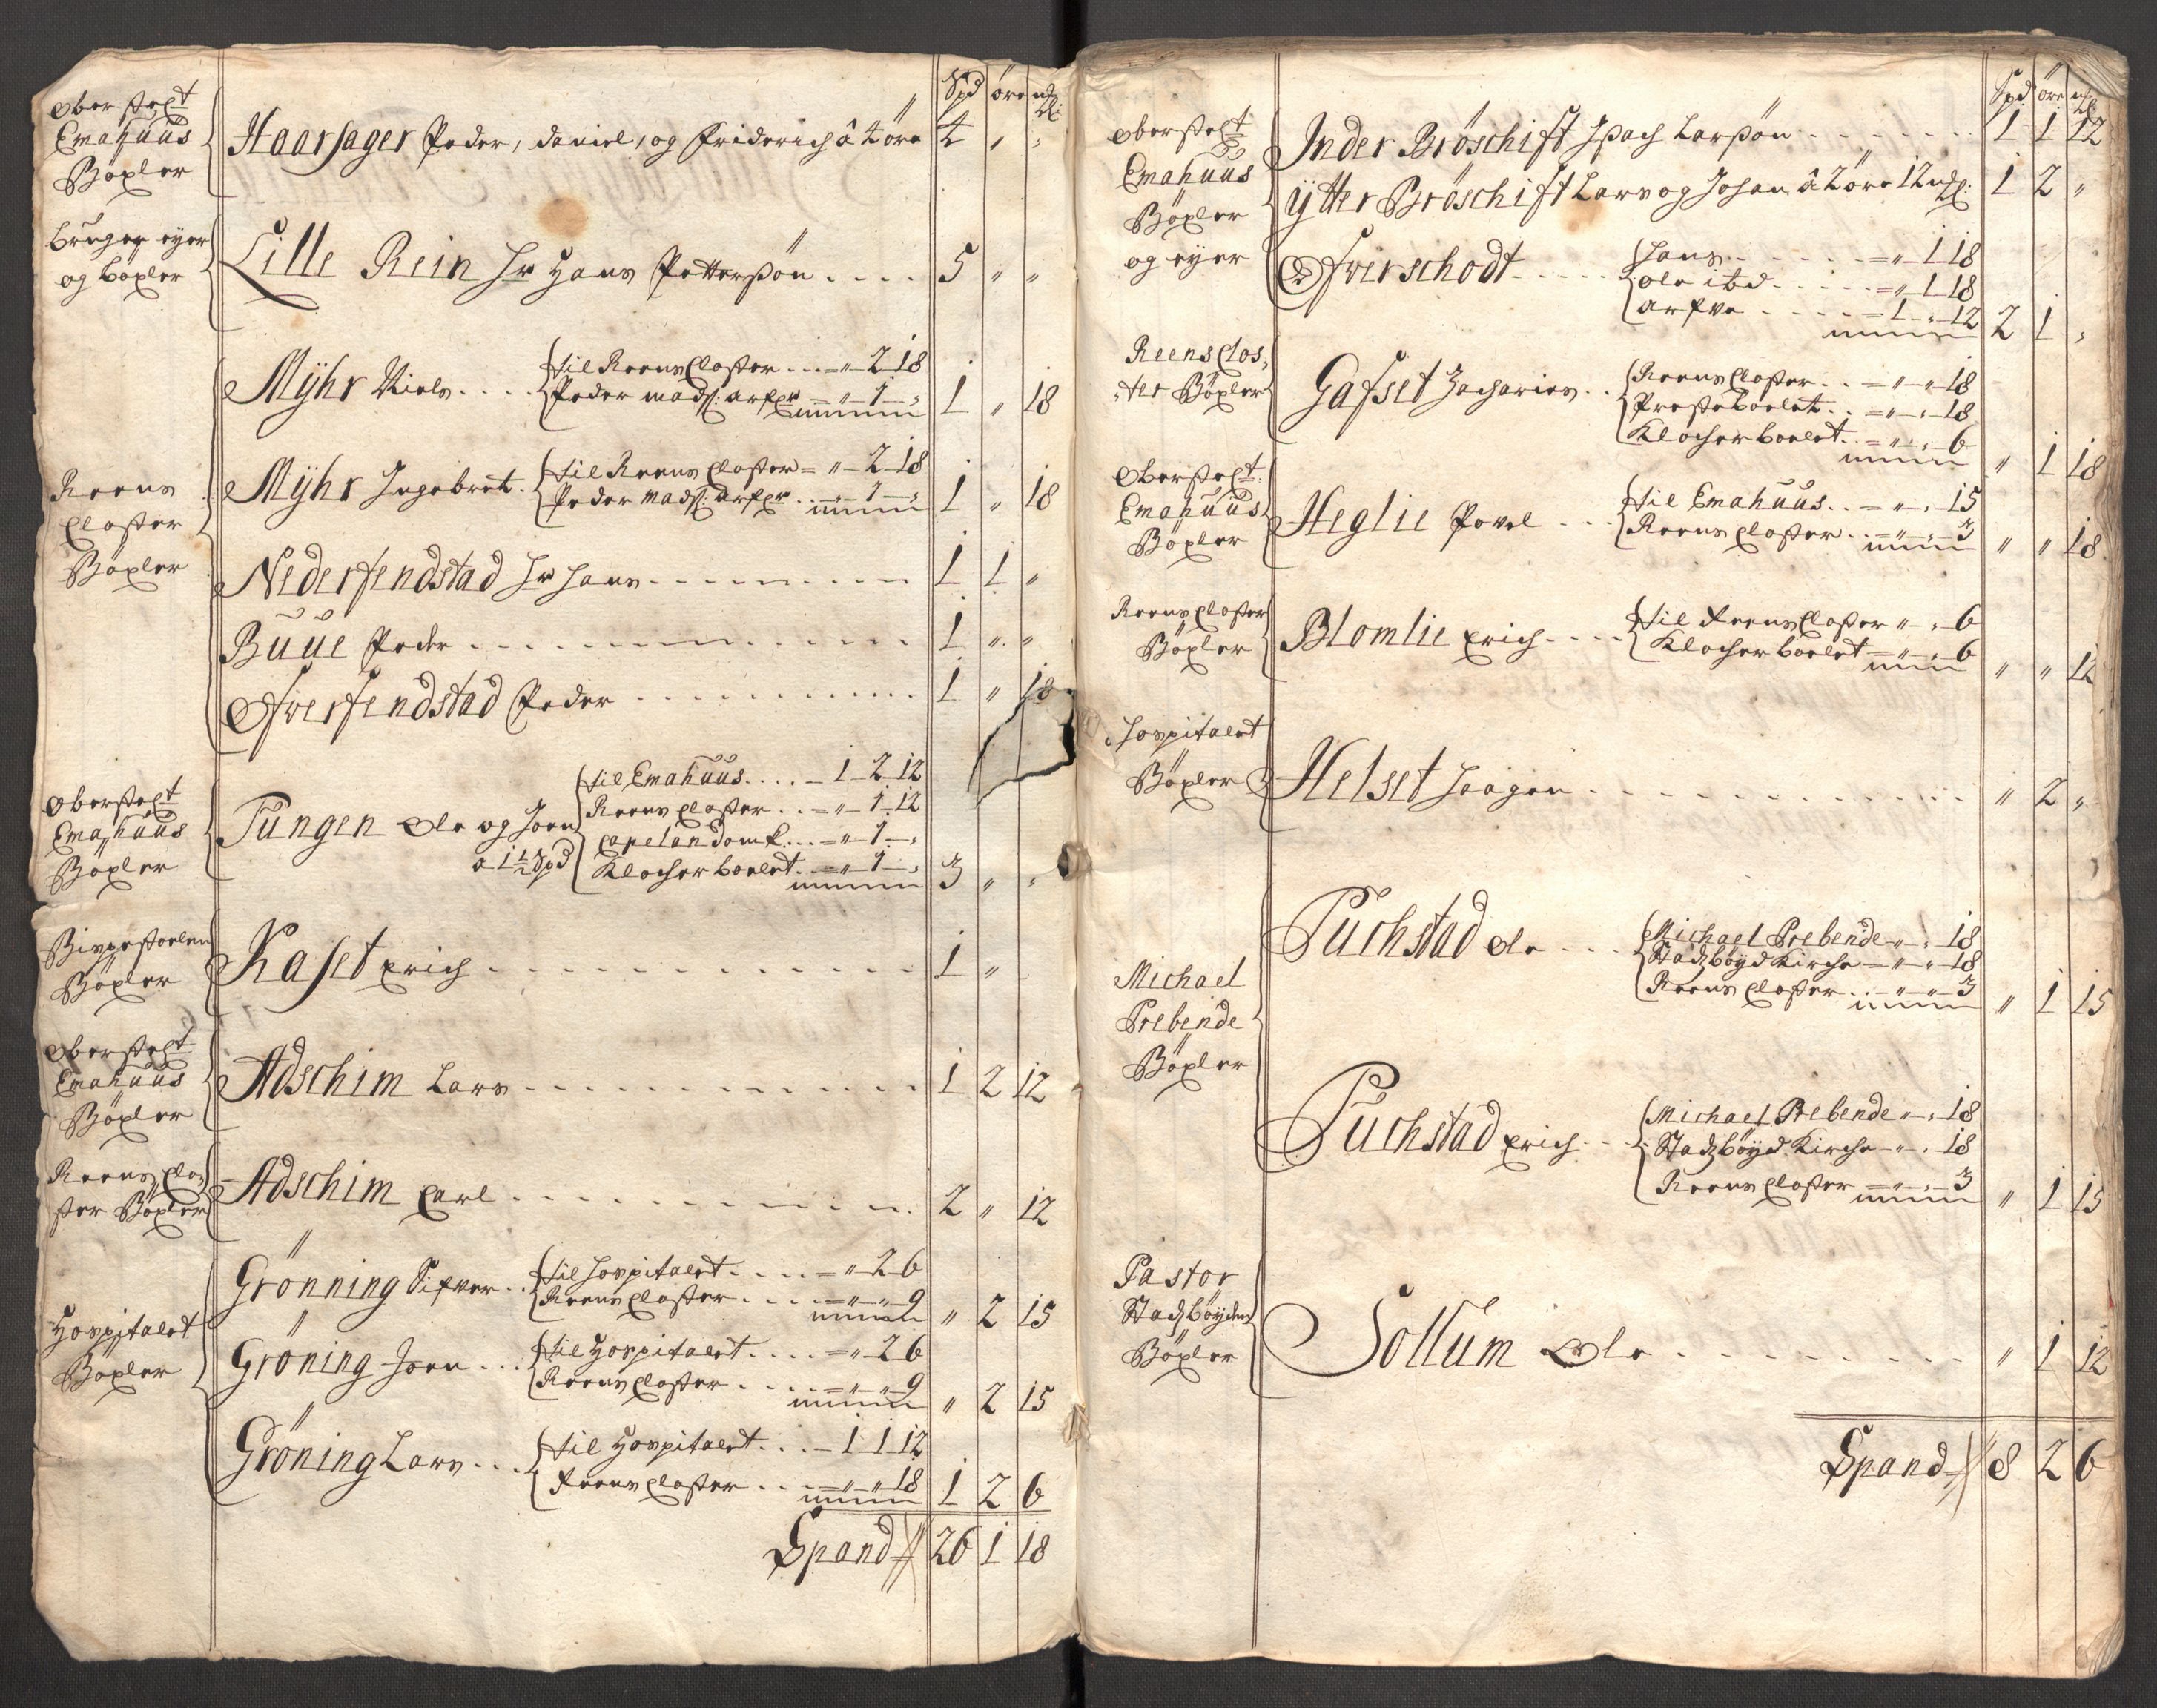 Spd öre ml
Oberstel:t
Emahuus
Böxler
Haarsager Peder, daniel, og Friderich â 4 öre 4 " "
bruger eyer
og böxler
Lille Rein Hr Hans Pettersøn .... 5 " "
Reens
Closter
Böxler
Mÿhr Niels .... til Reens Closter ... = " 2 18
Peder mads: arfer = " 1 " 1 " 18
Mÿhr Ingebret . til Reens Closter = " 2 18
Peder mads: arfer .. " 1 " 1 " 18
Nederfendstad Hr Hans 1 1 "
Buue Peder 1 " "
Ofverfendstad Peder 1 " 18
Oberstel:t
Emahuus
Böxler
Tungen Ole og Joen
a 1½ Spd
til Emahuus .... 1 2 12
Reens Closter .. = " 1 12
Capelan domk: ... = " 1 "
Klocher boelet . = " 1 " 3 " "
Bispestoelen
Böxler
Raset Erich 1 "
Oberstel:t
Emahuus
Böxler
Adschim Lars 1 2 12
Reens Clo
ster Böxler
Adschim Carl 2 " 12
Hospitalet
Böxler
Grönning Sifver .. til Hospitalet .... = " 2 6
Reens Closter .... " " 9 " 2 15
Gröning Joen ... til Hospitalet .... = " 2 6
Reens Closter .... " " 9 " 2 15
Gröning Lars ... til Hospitalet ... 1 1 12
Reens Closter .. " " 18 1 2 6
Spand 26 1 18
Spd öre ml
Oberstel:t
Emahuus
Böxler
og eyer
Inder Bröschift Isach Larsøn 1 1 12
ÿtter Bröschift Lars og Johan â 2 öre 12 ml: 1 2 "
Ofverschodt Hans = " 1 18
Ole ibd = " 1 18
arfve = 1 " 12 2 1 "
Reensclos,
,,ter Böxler
Gafset Zacharies .. Reens Closter .. = " " 18
Prestebolet .. = " " 18
Klocher boelet .. = " " 6 " 1 18
Oberstel:t
Emahuus
Böxler
Heglie Povel ... til Emahuus .. = " " 15
Reens Closter .. " " 3 " " 18
Reens Closter
Böxler
Blomlie Erich .... til Reens Closter " " 6
Klocher boelet = " " 6 " " 12
Hospitalet
Böxler
Helset Haagen " 2 "
Michael
Prebende
Böxler
Puchstad Ole .... Michael Prebende " " 18
Stadzböyd Kirche = " " 18
Reens Closter .. " " 3 " 1 15
Puchstad Erich ... Michael Prebende " " 18
Stadzböyd Kirche " " 18
Reens Closter = " " 3 " 1 15
Pastor
Stadzböyden
Böxler
Sollum Ole " 1 12
Spand 8 2 6